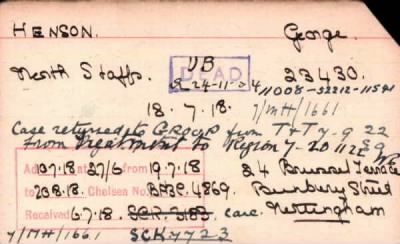 HENSON. George.
North Staffs. VB 23430.
DEAD
24-11-24
41008-52212-11541
18.7.18. 7/MH/1661
Case returned to GROUP from T&T 7-9 22
From Treatment to Region 7-20 11 22
Ad from
10.7.18 27/6 19.7.18 24 Brunswick Terrace
to 20.8.18. Chelsea No. 4869. Bunbury Street
Received 6.7.18. SCR. 3183 case. Nottingham
7/MH/1661 SCK7723